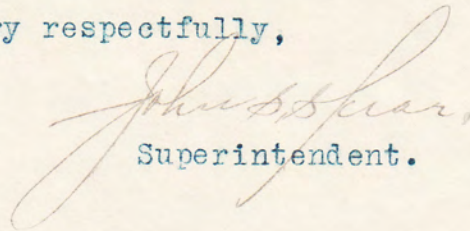 ry respectfully,
John S. Spear.
Superintendent.